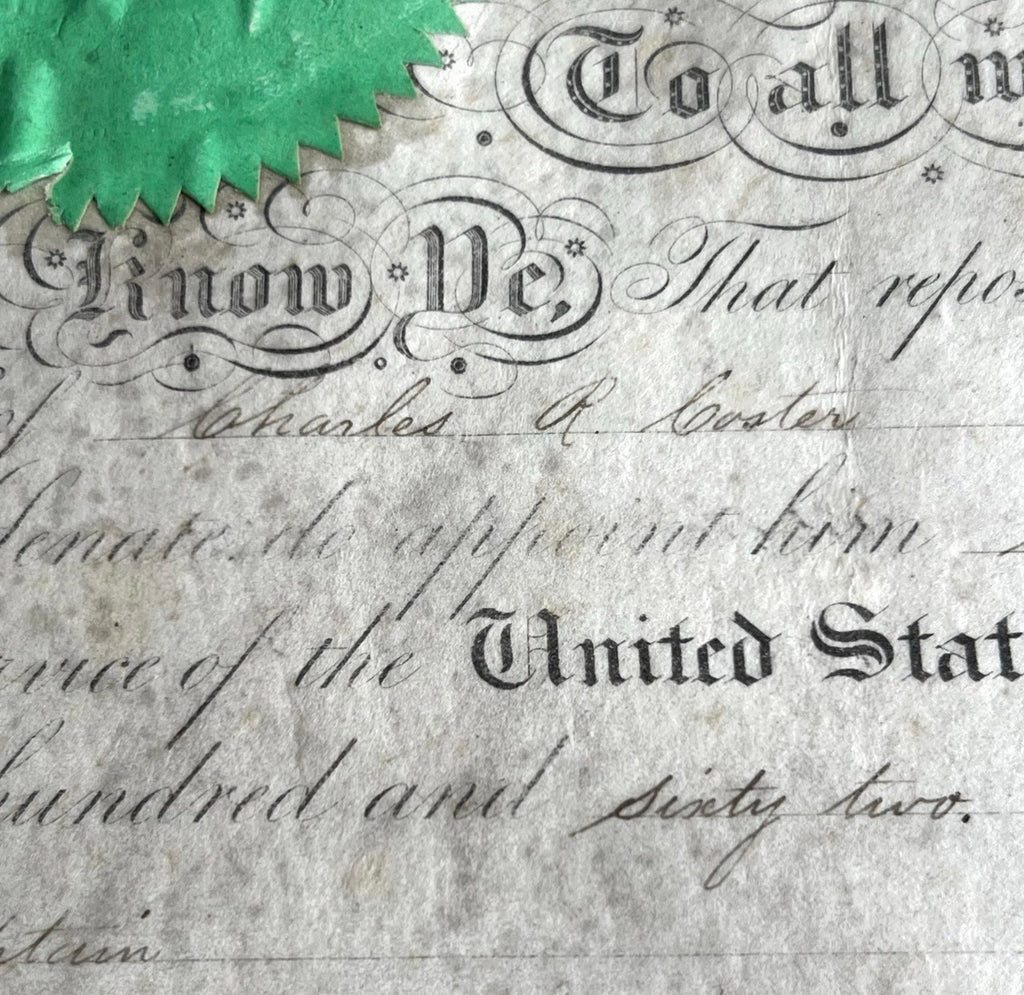 To all
Know Ye, That
of Charles R. Coster
Senate do appoint him
rvice of the United Stat
hundred and sixty two.
ptain